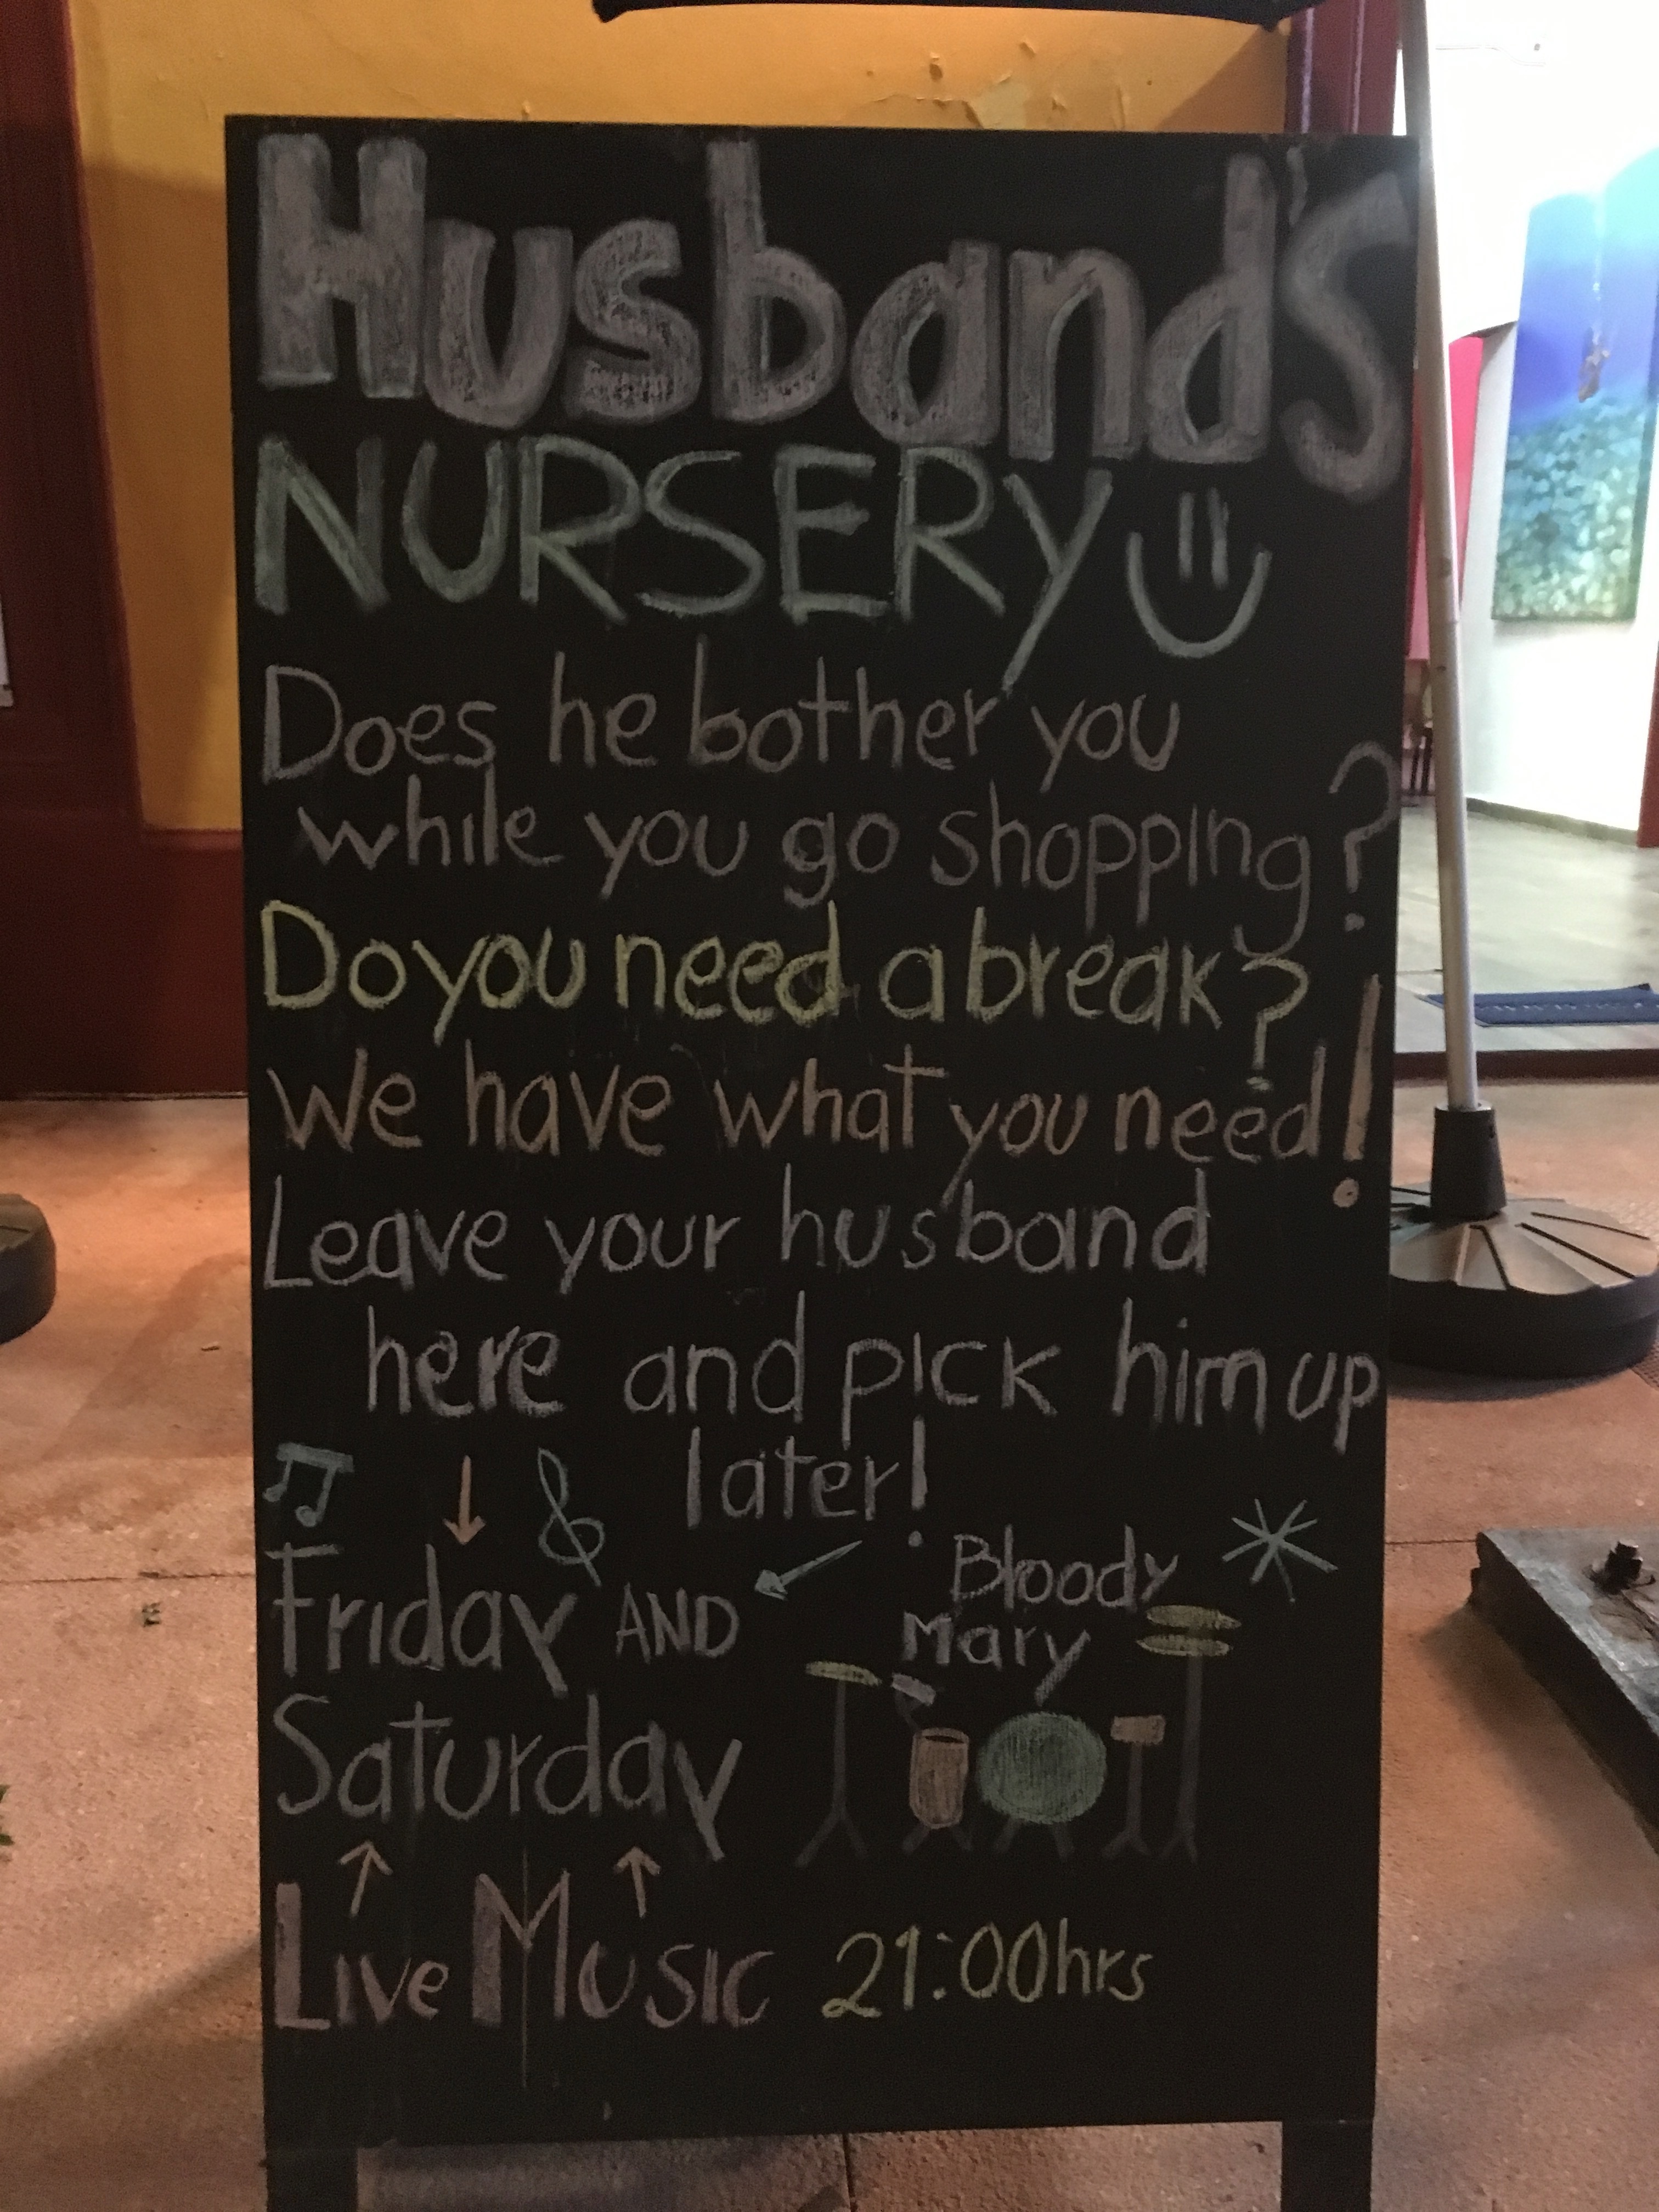 Husband's
NURSERY
Does he bother you
while you go shopping?
Do you need a break?
We have what you need!
Leave your husband
here and pick him up
later!
Friday AND
Saturday
Bloody
Mary
Live Music 21:00hrs